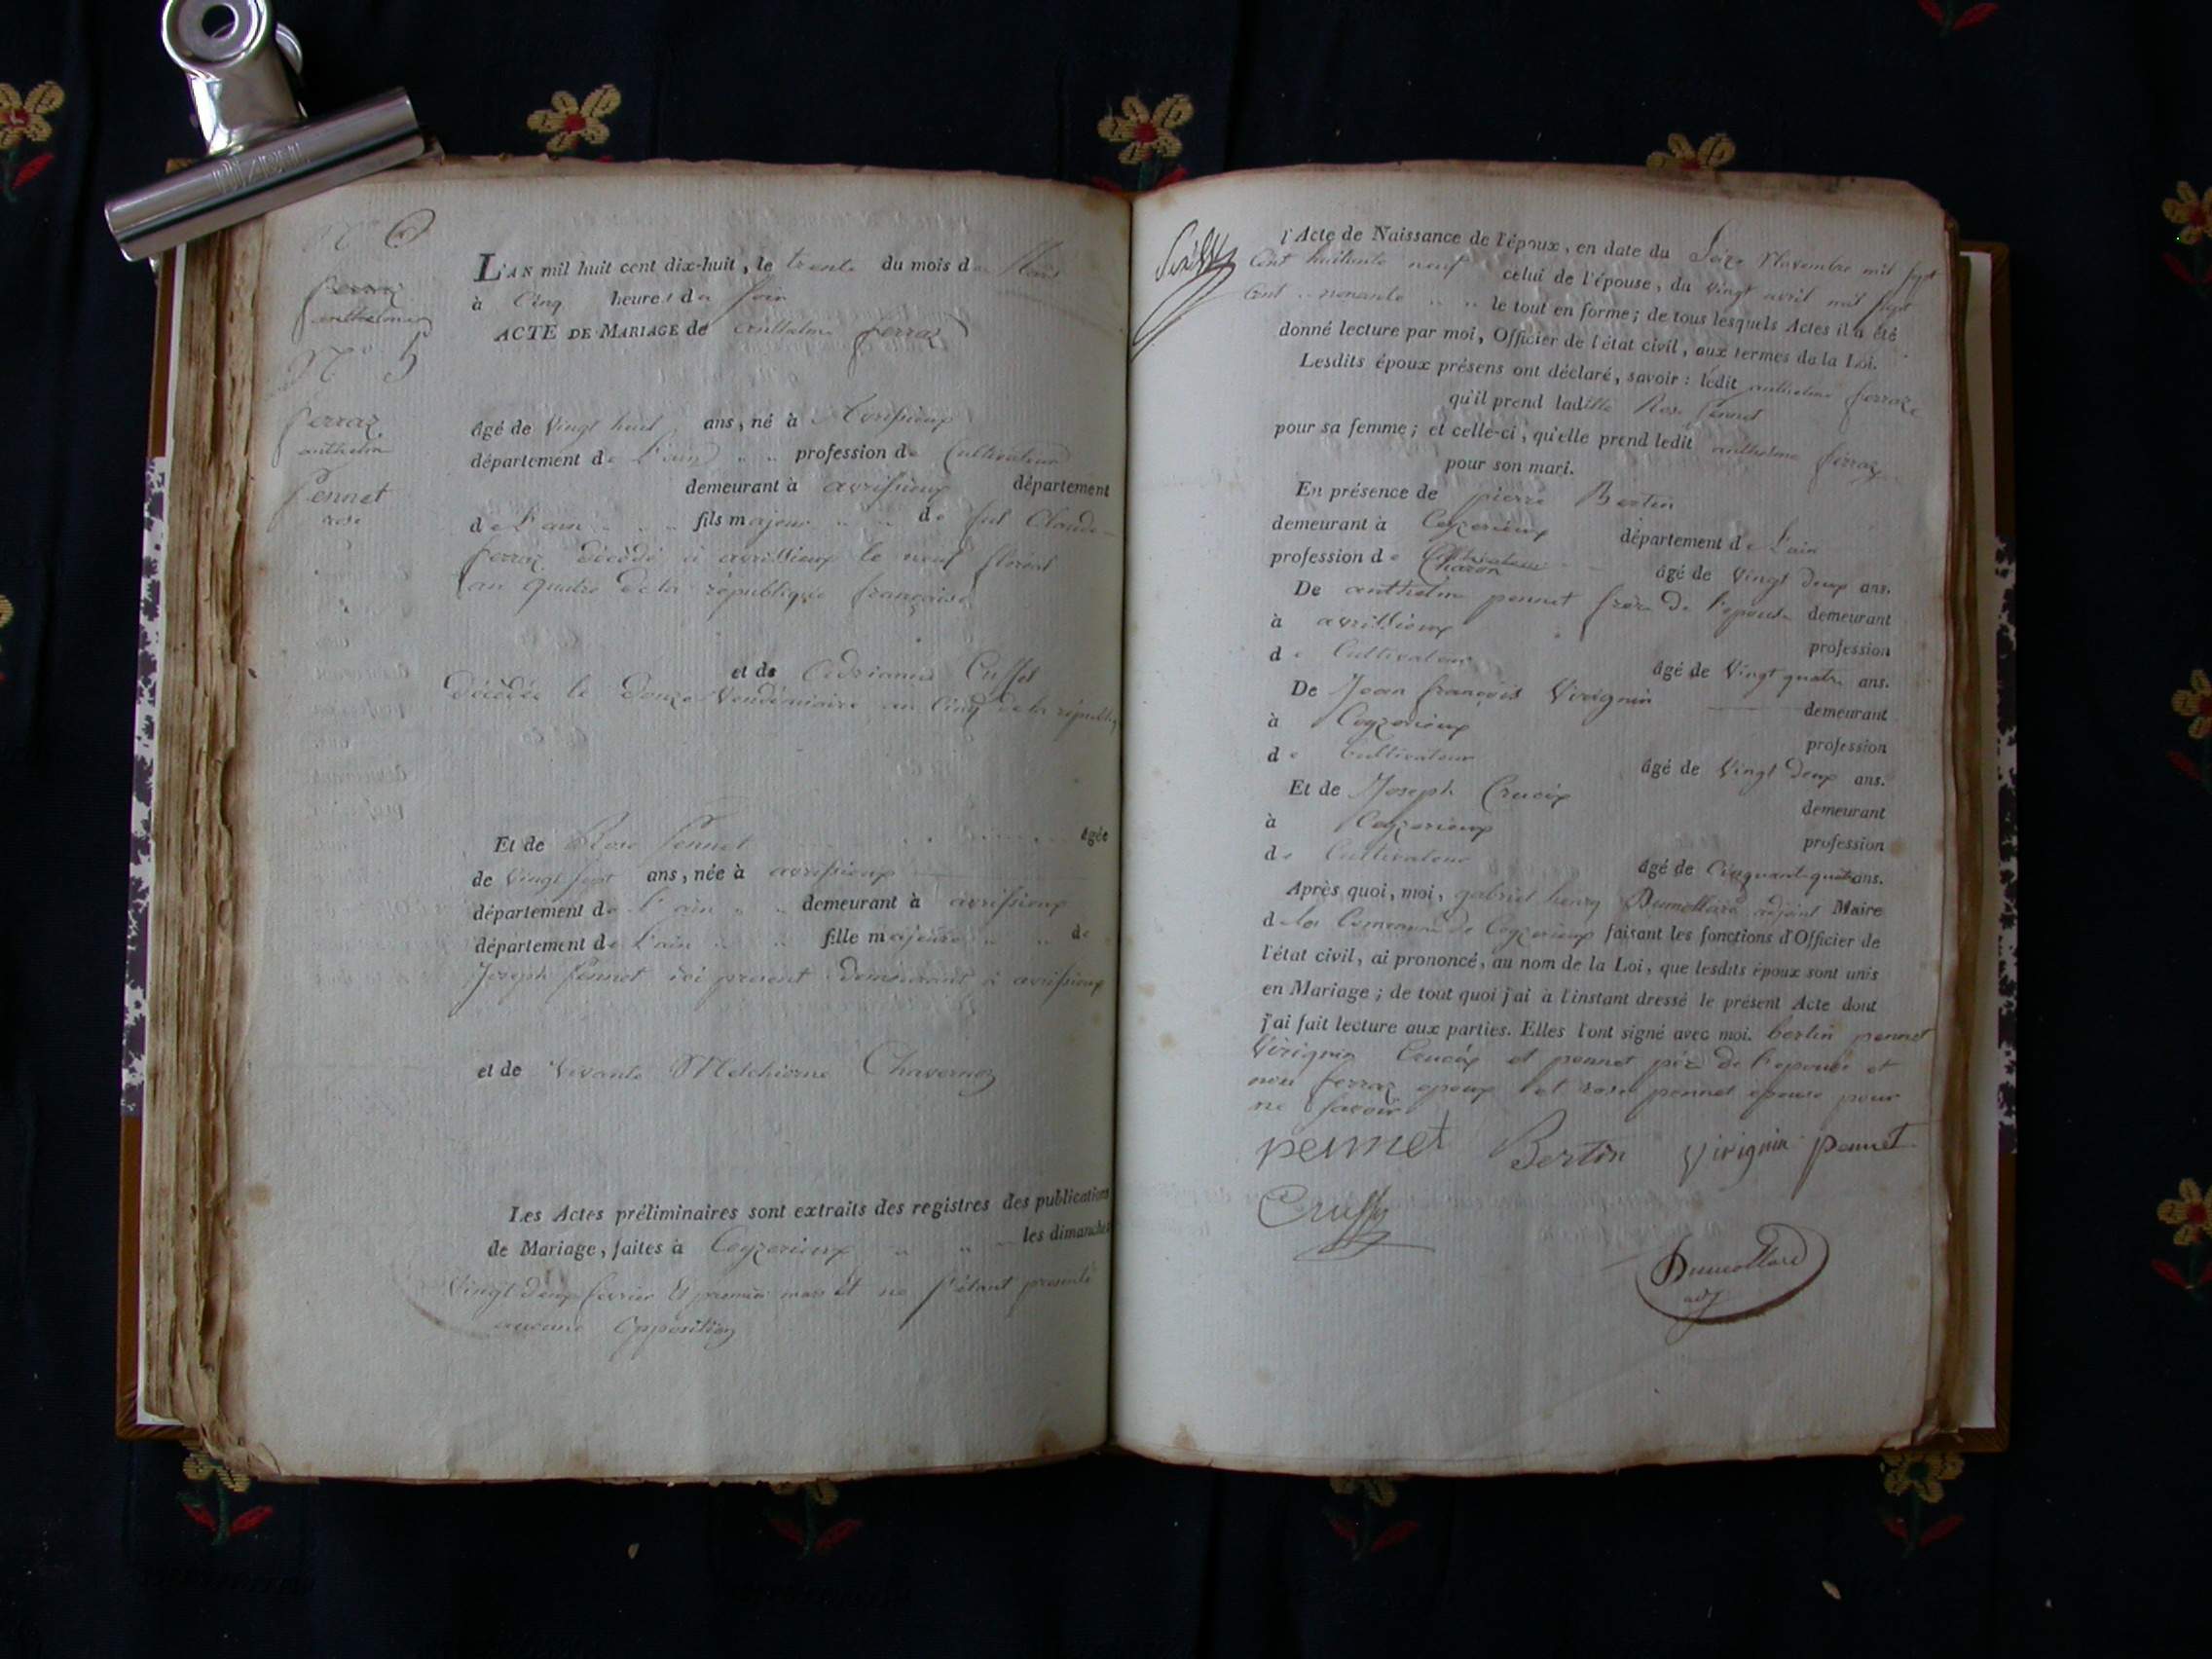 N° 6
L'AN mil huit cent dix-huit, le trente du mois de Mars
à Cinq heures du Soir
ACTE DE MARIAGE de anthelme ferraz
ferraz
anthelme
N° 5
ferraz
anthelme
Pennet
rose
âgé de Vingt huit ans, né à
département de L'ain profession de Cultivateur
demeurant à avrissieux département
de L'ain fils majeur de feu Claude
ferraz décédé à avrissieux le neuf floréal
an quatre de la république française
et de Cussel
Décédée le Douze Vendémiaire an Cinq de la républ
Et de Rose Pennet âgée
de Vingt sept ans, née à avrissieux
département de L'ain demeurant à avrissieux
département de L'ain fille majeure de
Joseph Pennet ici present demeurant à avrissieux
et de vivante Melchione Chavernoz
Les Actes préliminaires sont extraits des registres des publications
de Mariage, faites à Ceyzerieux les dimanches
Vingt deux fevrier Et premier mars et ne s'étant presenté
aucune Opposition
l'Acte de Naissance de l'époux, en date du Seize Novembre mil sept
Cent huitante neuf celui de l'épouse, du vingt avril mil sept
Cent nonante le tout en forme; de tous lesquels Actes il a été
donné lecture par moi, Officier de l'état civil, aux termes de la Loi.
Lesdits époux présens ont déclaré, savoir: ledit anthelme ferraz
qu'il prend ladite Rose Pennet
pour sa femme; et celle-ci, qu'elle prend ledit anthelme ferraz
pour son mari.
En présence de pierre Bertin
demeurant à Ceyzerieux département de L'ain
profession de Charon âgé de Vingt deux ans.
De anthelme pennet frère de l'epouse demeurant
à avrissieux profession
de Cultivateur âgé de Vingt quatre ans.
De Jean françois Virignin demeurant
à Ceyzerieux profession
de Cultivateur âgé de Vingt deux ans.
Et de Joseph Crucix demeurant
à Ceyzerieux profession
de Cultivateur âgé de Cinquant quatre ans.
Après quoi, moi, gabriel henry Dumollard adjoint Maire
de la Commune de Ceyzerieux faisant les fonctions d'Officier de
l'état civil, ai prononcé, au nom de la Loi, que lesdits époux sont unis
en Mariage; de tout quoi j'ai à l'instant dressé le présent Acte dont
j'ai fait lecture aux parties. Elles l'ont signé avec moi. bertin pennet
Virignin Crucix et pennet père de l'epouse et
non ferraz epoux et rose pennet epouse pour
ne savoir
pennet Bertin virignin pennet
Dumollard
adj